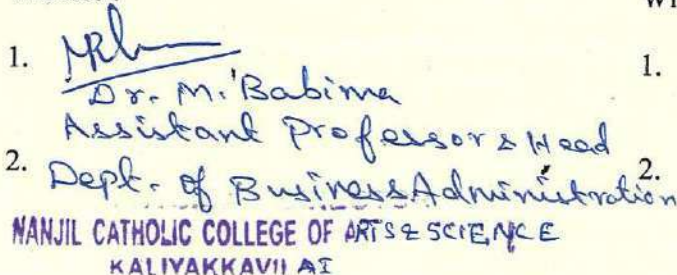 1.
Dr. M. Babima
Assistant Professor & Head
2.
Dept. of Business Administration
NANJIL CATHOLIC COLLEGE OF ARTS & SCIENCE
KALIYAKKAVILAI
1.
2.